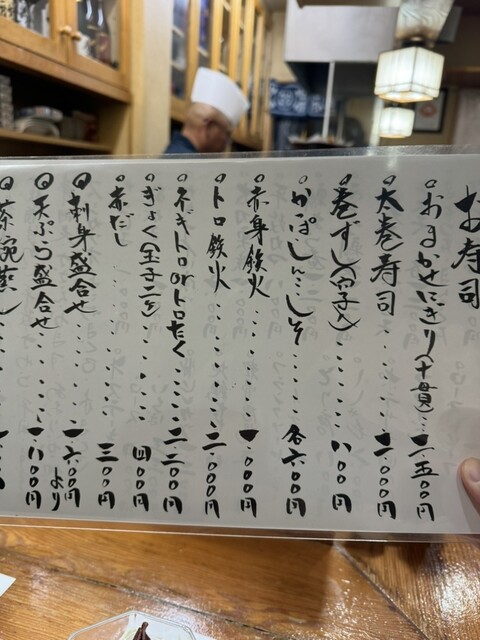 お寿司
○おまかせにぎり(十貫)‥二.五〇〇円
○太巻寿司‥‥二.〇〇〇円
○巻ずし‥‥八〇〇円
○かっぱしんこしそ 各六〇〇円
○赤身鉄火‥‥
○トロ鉄火‥‥二.〇〇〇円
○ネギトロorトロたく‥‥二.二〇〇円
○ぎょく(玉子二ケ)‥‥四〇〇円
○赤だし‥‥三〇〇円
○刺身盛合せ‥‥一.六〇〇円より
○天ぷら盛合せ‥‥一.八〇〇円
○茶碗蒸し‥‥